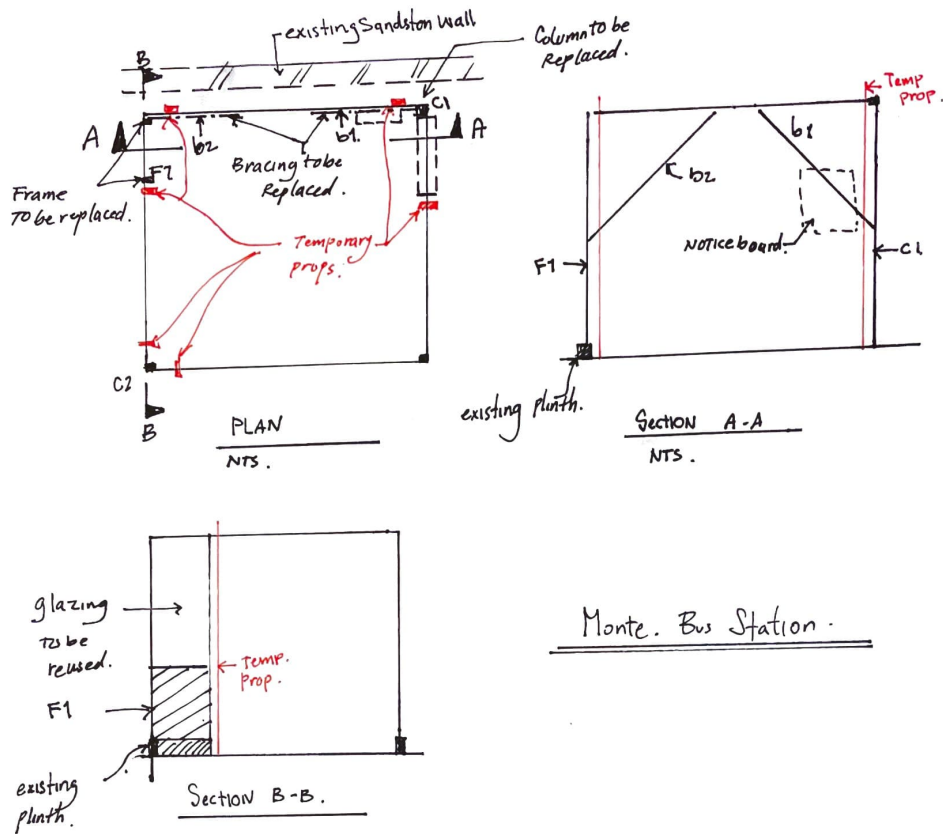 existing Sandston Wall
Column to be
Replaced.
B
C1
A
A
b2
b1.
F1
Bracing to be
Replaced.
Frame
To be replaced.
Temporary
props.
C2
B
PLAN
NTS.
Temp
prop.
b1
b2
NOTICE board.
F1
C1
existing plinth.
Section A-A
NTS.
glazing
To be
reused.
Temp.
prop.
F1
existing
plinth.
Section B-B.
Monte. Bus Station.